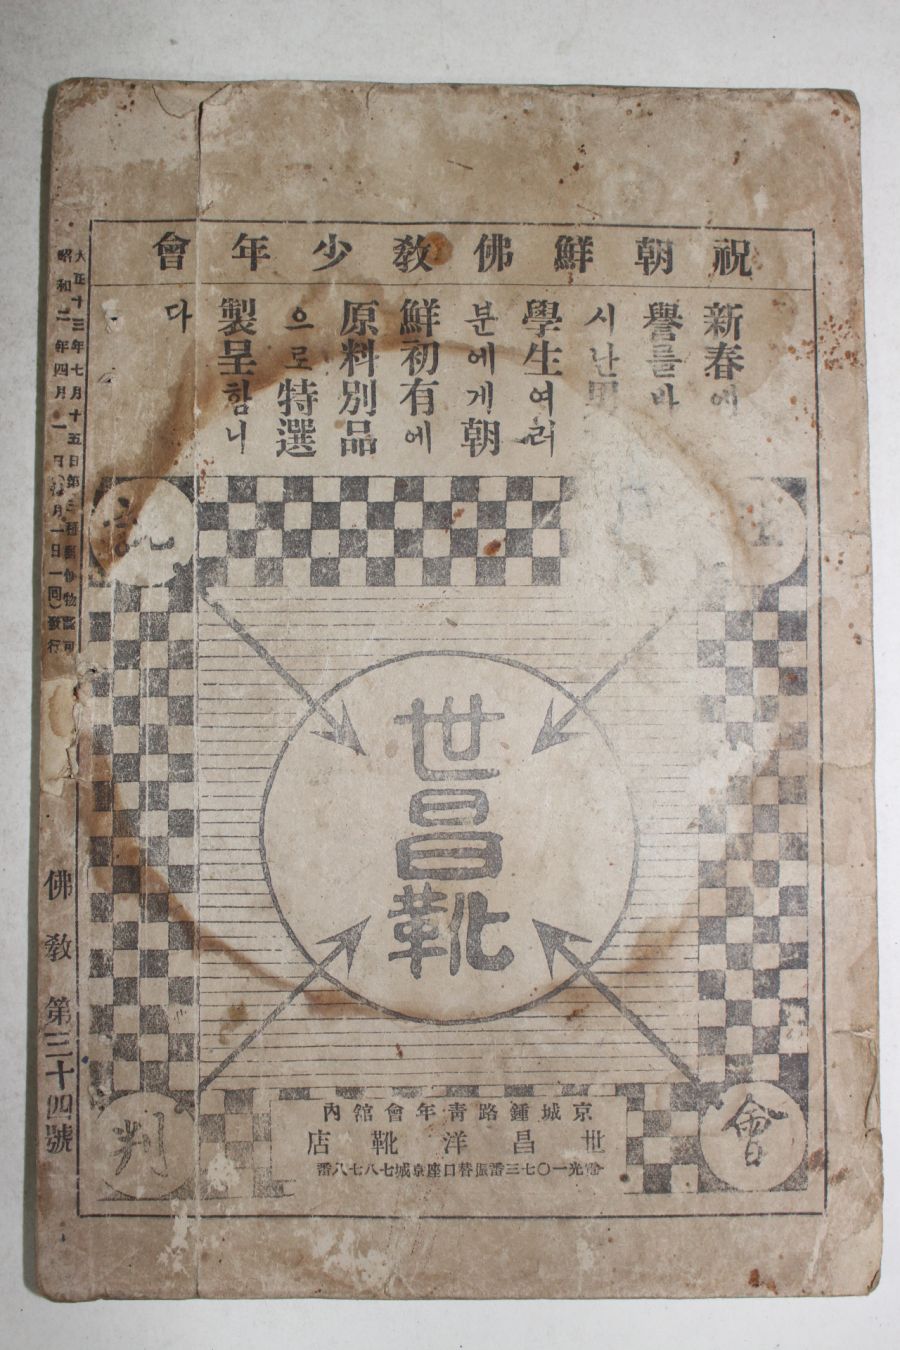 祝朝鮮佛敎少年會
新春에
譽를바
시난男
學生여러
분에게朝
鮮初有에
原料別品
으로特選
製呈함니
다
世昌靴
會
判
京城鍾路靑年會舘內
世昌洋靴店
光一〇七三番振替口座京城七八七八番
大正十三年七月十五日第三種郵便物認可
昭和二年四月一日(每月一日一回)發行
佛敎 第三十四號